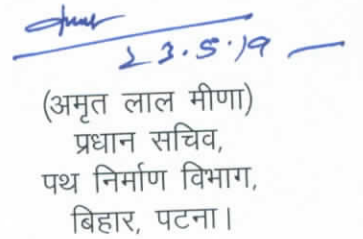 23.5.19
(अमृत लाल मीणा)
प्रधान सचिव,
पथ निर्माण विभाग,
बिहार, पटना।